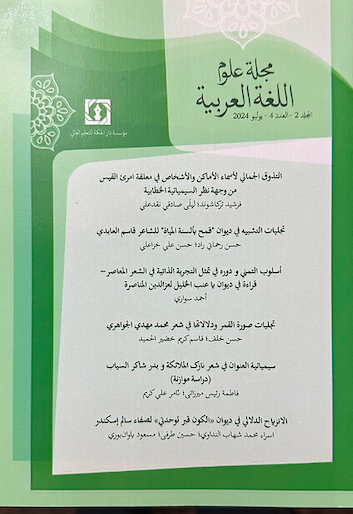 مجلة علوم
اللغة العربية
المجلد 2 - العدد 4 - يوليو 2024
مؤسسة دار الحكمة للتعليم العالي
التذوق الجمالي لأسماء الأماكن والأشخاص في معلقة امرئ القيس
من وجهة نظر السيميائية الخطابية
فرشيد تركاشوند؛ ليلى صادقي نقدعلي
تجليات التشبيه في ديوان "قمح بألسنة المياة" للشاعر قاسم العابدي
حسن رحماني راد؛ حسن علي خزاعلي
أسلوب التمني و دوره في تمثل التجربة الذاتية في الشعر المعاصر–
قراءة في ديوان يا عنب الخليل لعزالدين المناصرة
أحمد سواري
تجليات صورة القمر ودلالاتها في شعر محمد مهدي الجواهري
حسن خلف؛ قاسم كريم خضير الحميد
سيميائية العنوان في شعر نازك الملائكة و بدر شاكر السياب
(دراسة موازنة)
فاطمة رئيس ميرزائي؛ ثامر علي كريم
الانزياح الدلالي في ديوان «الكون قبر لوحدتي» لصفاء سالم إسكندر
اسراء محمد شهاب النداوي؛ حسين طرفي؛ مسعود باوان‌بوري